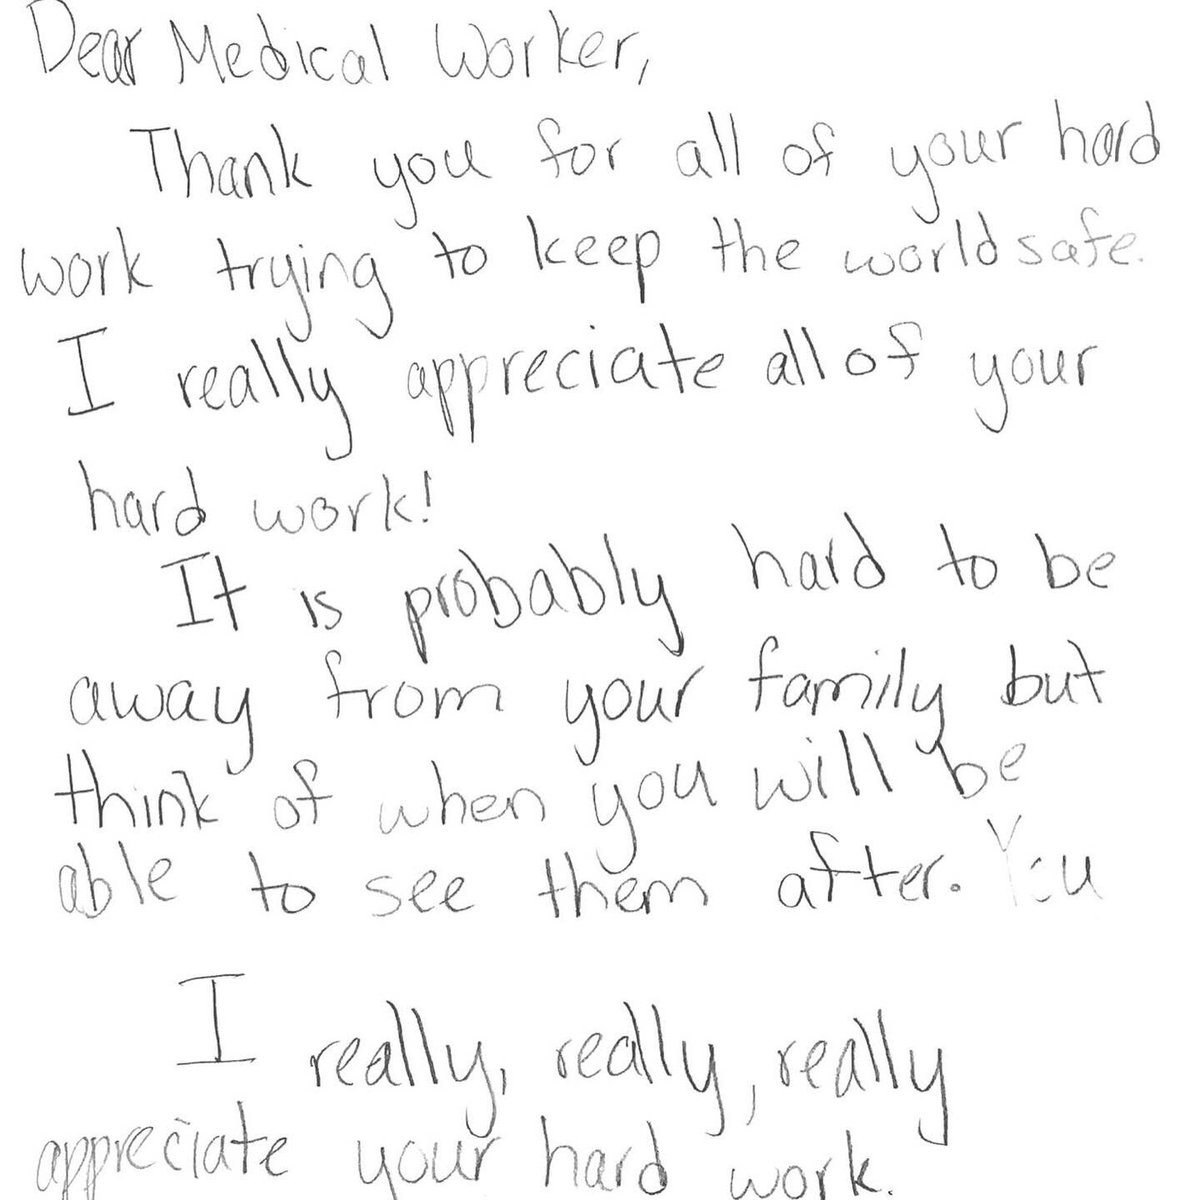 Dear Medical Worker,
Thank you for all of your hard
work trying to keep the world safe.
I really appreciate all of your
hard work!
It is probably hard to be
away from your family but
think of when you will be
able to see them after. You
I really, really, really
appreciate your hard work.